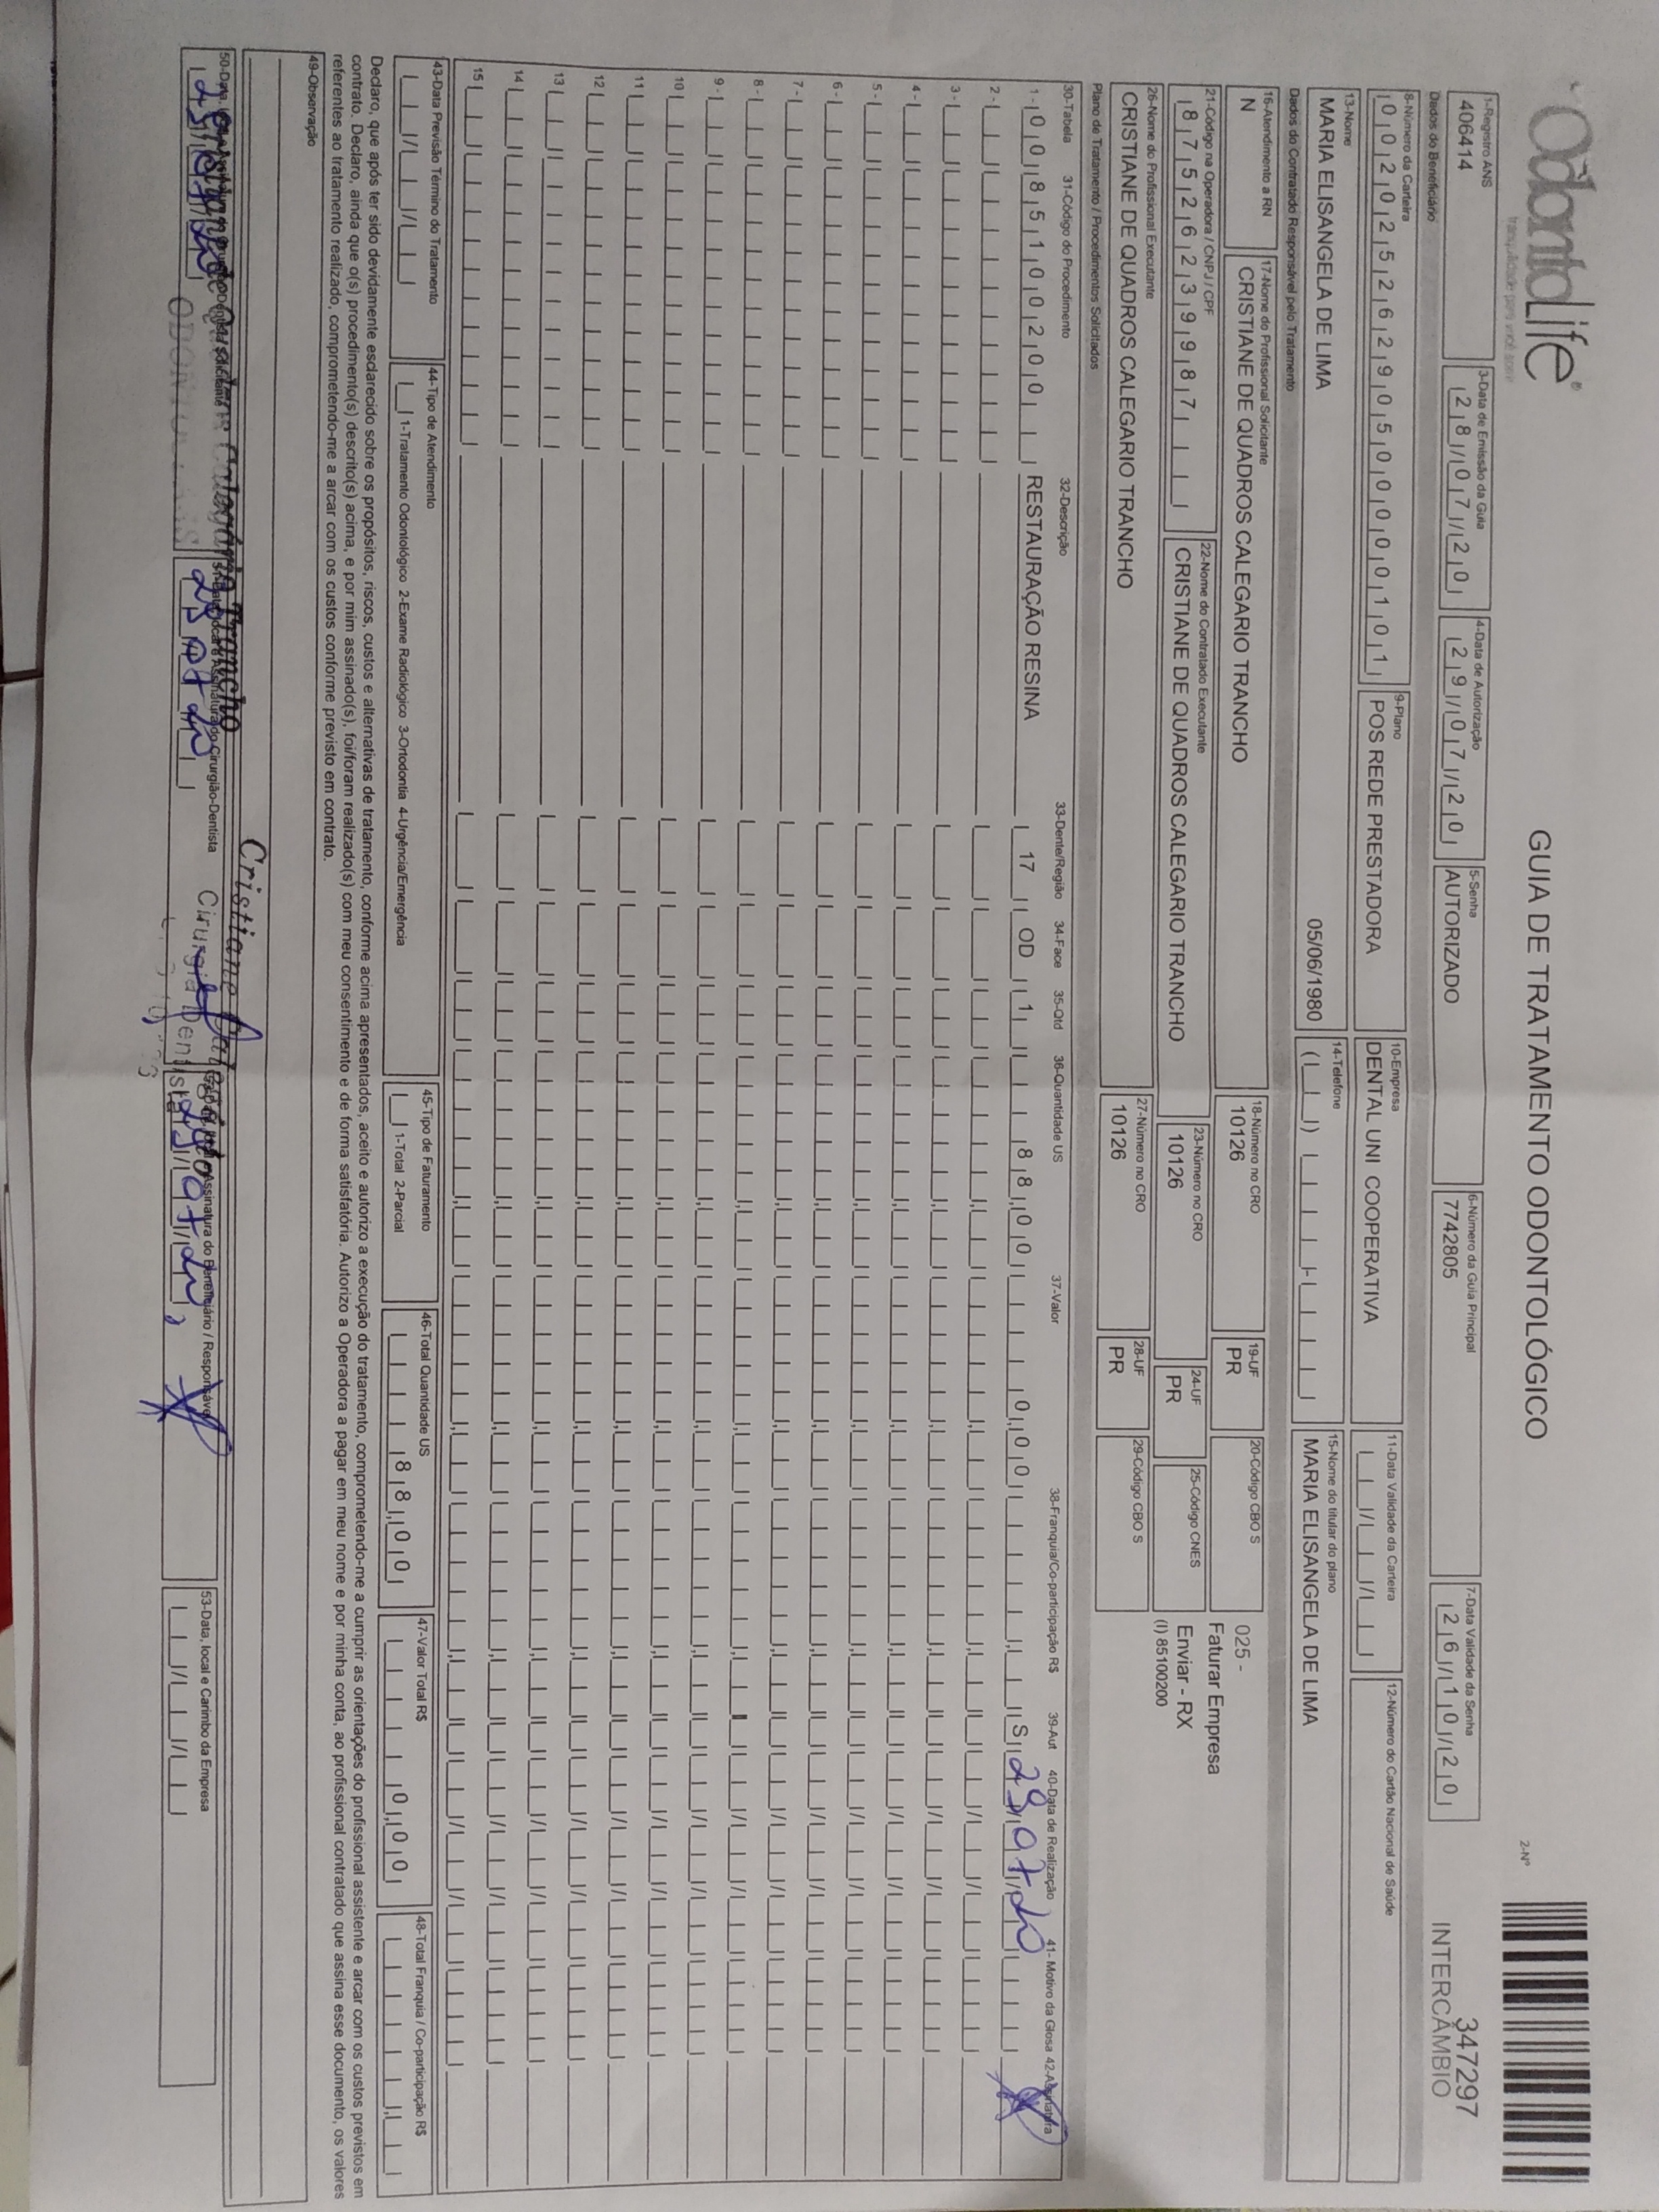 OdontoLife®
tranquilidade para você sorrir
GUIA DE TRATAMENTO ODONTOLÓGICO
2-Nº
347297
INTERCÂMBIO
1-Registro ANS
406414
3-Data de Emissão da Guia
28/07/20
4-Data de Autorização
29/07/20
5-Senha
AUTORIZADO
6-Número da Guia Principal
7742805
7-Data Validade da Senha
26/10/20
Dados do Beneficiário
8-Número da Carteira
0020252629050000101
9-Plano
POS REDE PRESTADORA
10-Empresa
DENTAL UNI COOPERATIVA
11-Data Validade da Carteira
12-Número do Cartão Nacional de Saúde
13-Nome
MARIA ELISANGELA DE LIMA
05/06/1980
14-Telefone
15-Nome do titular do plano
MARIA ELISANGELA DE LIMA
Dados do Contratado Responsável pelo Tratamento
16-Atendimento a RN
N
17-Nome do Profissional Solicitante
CRISTIANE DE QUADROS CALEGARIO TRANCHO
18-Número no CRO
10126
19-UF
PR
20-Código CBO S
025 -
Faturar Empresa
21-Código na Operadora / CNPJ / CPF
87526239987
22-Nome do Contratado Executante
CRISTIANE DE QUADROS CALEGARIO TRANCHO
23-Número no CRO
10126
24-UF
PR
25-Código CNES
Enviar - RX
(I) 85100200
26-Nome do Profissional Executante
CRISTIANE DE QUADROS CALEGARIO TRANCHO
27-Número no CRO
10126
28-UF
PR
29-Código CBO S
Plano de Tratamento / Procedimentos Solicitados
30-Tabela 31-Código do Procedimento 32-Descrição 33-Dente/Região 34-Face 35-Qtd 36-Quantidade US 37-Valor 38-Franquia/Co-participação R$ 39-Aut 40-Data de Realização 41- Motivo da Glosa 42-Assinatura
1 - 00 85100200 RESTAURAÇÃO RESINA 17 OD 1 88,00 0,00 S 29 07 20
2 -
3 -
4 -
5 -
6 -
7 -
8 -
9 -
10
11
12
13
14
15
43-Data Previsão Término do Tratamento
44-Tipo de Atendimento
1-Tratamento Odontológico 2-Exame Radiológico 3-Ortodontia 4-Urgência/Emergência
45-Tipo de Faturamento
1-Total 2-Parcial
46-Total Quantidade US
88,00
47-Valor Total R$
0,00
48-Total Franquia / Co-participação R$
Declaro, que após ter sido devidamente esclarecido sobre os propósitos, riscos, custos e alternativas de tratamento, conforme acima apresentados, aceito e autorizo a execução do tratamento, comprometendo-me a cumprir as orientações do profissional assistente e arcar com os custos previstos em
contrato. Declaro, ainda que o(s) procedimento(s) descrito(s) acima, e por mim assinado(s), foi/foram realizado(s) com meu consentimento e de forma satisfatória. Autorizo a Operadora a pagar em meu nome e por minha conta, ao profissional contratado que assina esse documento, os valores
referentes ao tratamento realizado, comprometendo-me a arcar com os custos conforme previsto em contrato.
49-Observação
Cristiane
Calegário Trancho
Cirurgiã Dentista
Cirurgião-Dentista
Assinatura do Beneficiário / Responsável
53-Data, local e Carimbo da Empresa
29 07 20
29 07 20
29 07 20